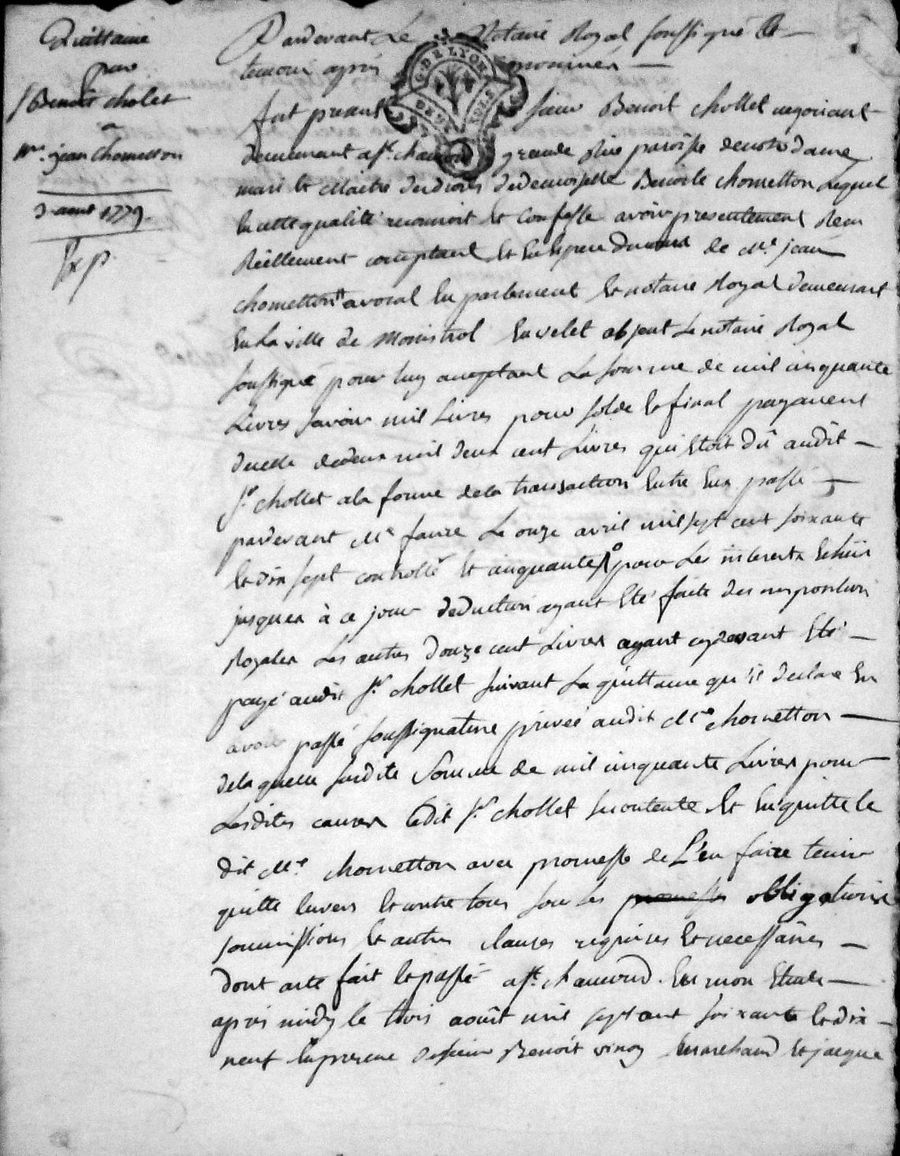 Quittance
par
Sr Benoit cholet
a
Me. jean chometton
3 aout 1779.
Exp.
G. DE LYON
DEUX SOLS
Pardevant Le Notaire Royal soussigné Et
temoins apres nommés
fut present sieur Benoit chollet negociant
demeurant a St. chamond grande Rue paroisse de notre dame
mari et Maitre des droits de demoiselle Benoite chometton Lequel
En cette qualité reconnoit Et confesse avoir presentement Recu
Réellement comptant Et En Espece de cours de Me. jean
chometton avocat En parlement Et notaire Royal demeurant
En La ville de Monistrol En velet absent Le notaire Royal
soussigné pour luy acceptant La somme de mil cinquante
Livres savoir mil Livres pour solde Et final payement
de celle de deux mil deux cent Livres qui Etoit dû audit
Sr. chollet a la forme de la transaction Entre Eux passé
pardevant Me faure Le onze avril mil sept cent soixante
Et dix sept controllé Et cinquante pour Les interets Echus
jusques à ce jour deduction ayant Eté faite des impositions
Royales Les autres douze cent Livres ayant cydevant Eté
payé audit Sr. chollet suivant La quittance qu'il declare En
avoir passé sous signature privée audit Me chometton
de laquelle susdite Somme de mil cinquante Livres pour
Lesdites causes Ledit Sr. chollet se contente Et En quitte le
dit Me. chometton avec promesse de L'en faire tenir
quitte Envers Et contre tous sous les promesses obligations
soumissions Et autres clauses requises Et necessaires
dont acte fait Et passé a St. chamond En mon Etude
apres midy le trois août mil sept cent soixante Et dix
neuf En presence de sieur Benoit vinoy Marchand Et jacque